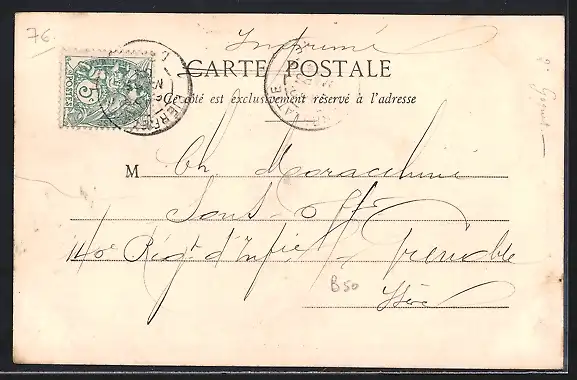 76
Imprimé
CARTE POSTALE
Ce côté est exclusivement réservé à l'adresse
M Ch. Maracchini
Sous-Off
140e Régt. d'Infie Grenoble
B50
Isère